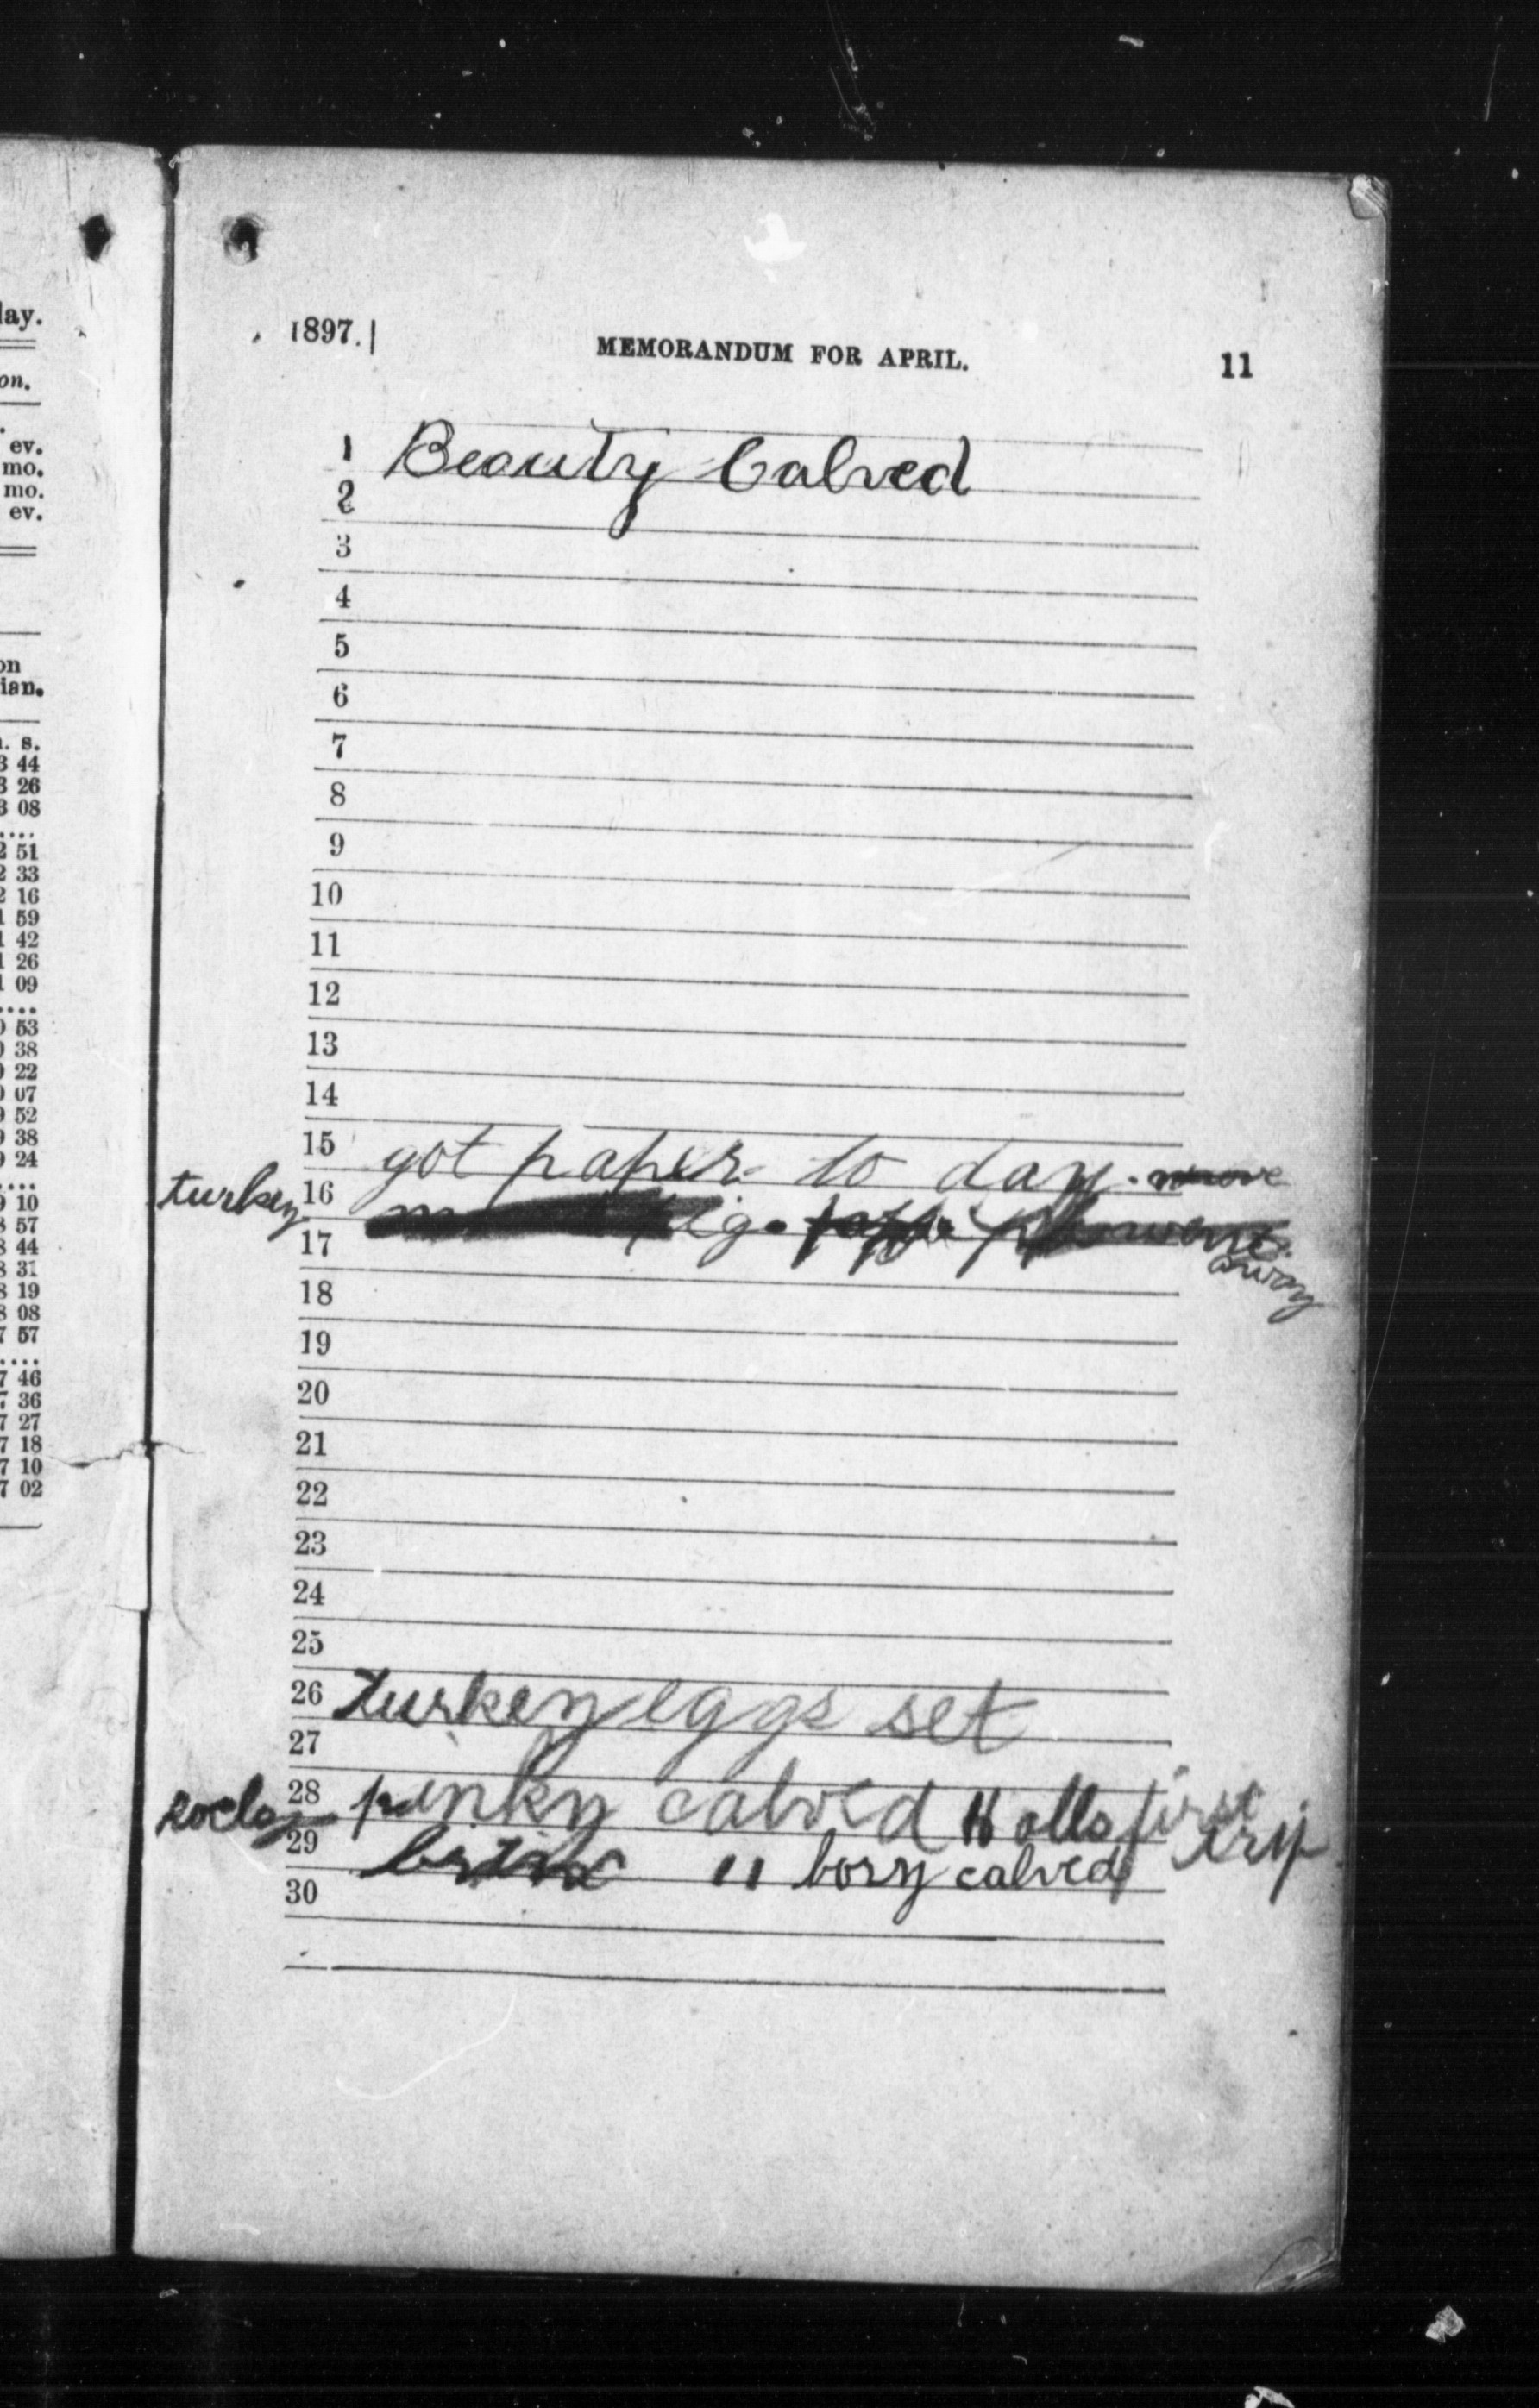 lay.
on.
ev.
mo.
mo.
ev.
on
ian.
s.
44
26
08
....
51
33
16
59
42
26
09
....
53
38
22
07
52
38
24
....
10
57
44
31
19
08
57
....
46
36
27
18
10
02
1897.
MEMORANDUM FOR APRIL.
11
1 Beauty Calved
2
3
4
5
6
7
8
9
10
11
12
13
14
15 got paper to day.
turkey 16
17
away
18
19
20
21
22
23
24
25
26 turkey eggs set
27
28 pinky calved Halls first
29 trip
" bosy calved
30